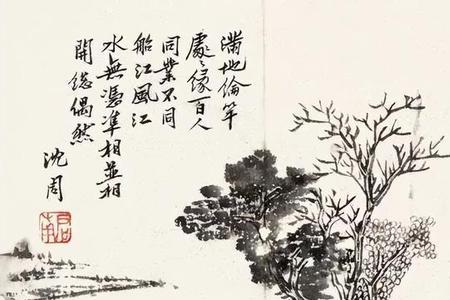 滿地綸竿
處々緣百人
同業不同
船江風江
水無憑準相並相
開總偶然
沈周